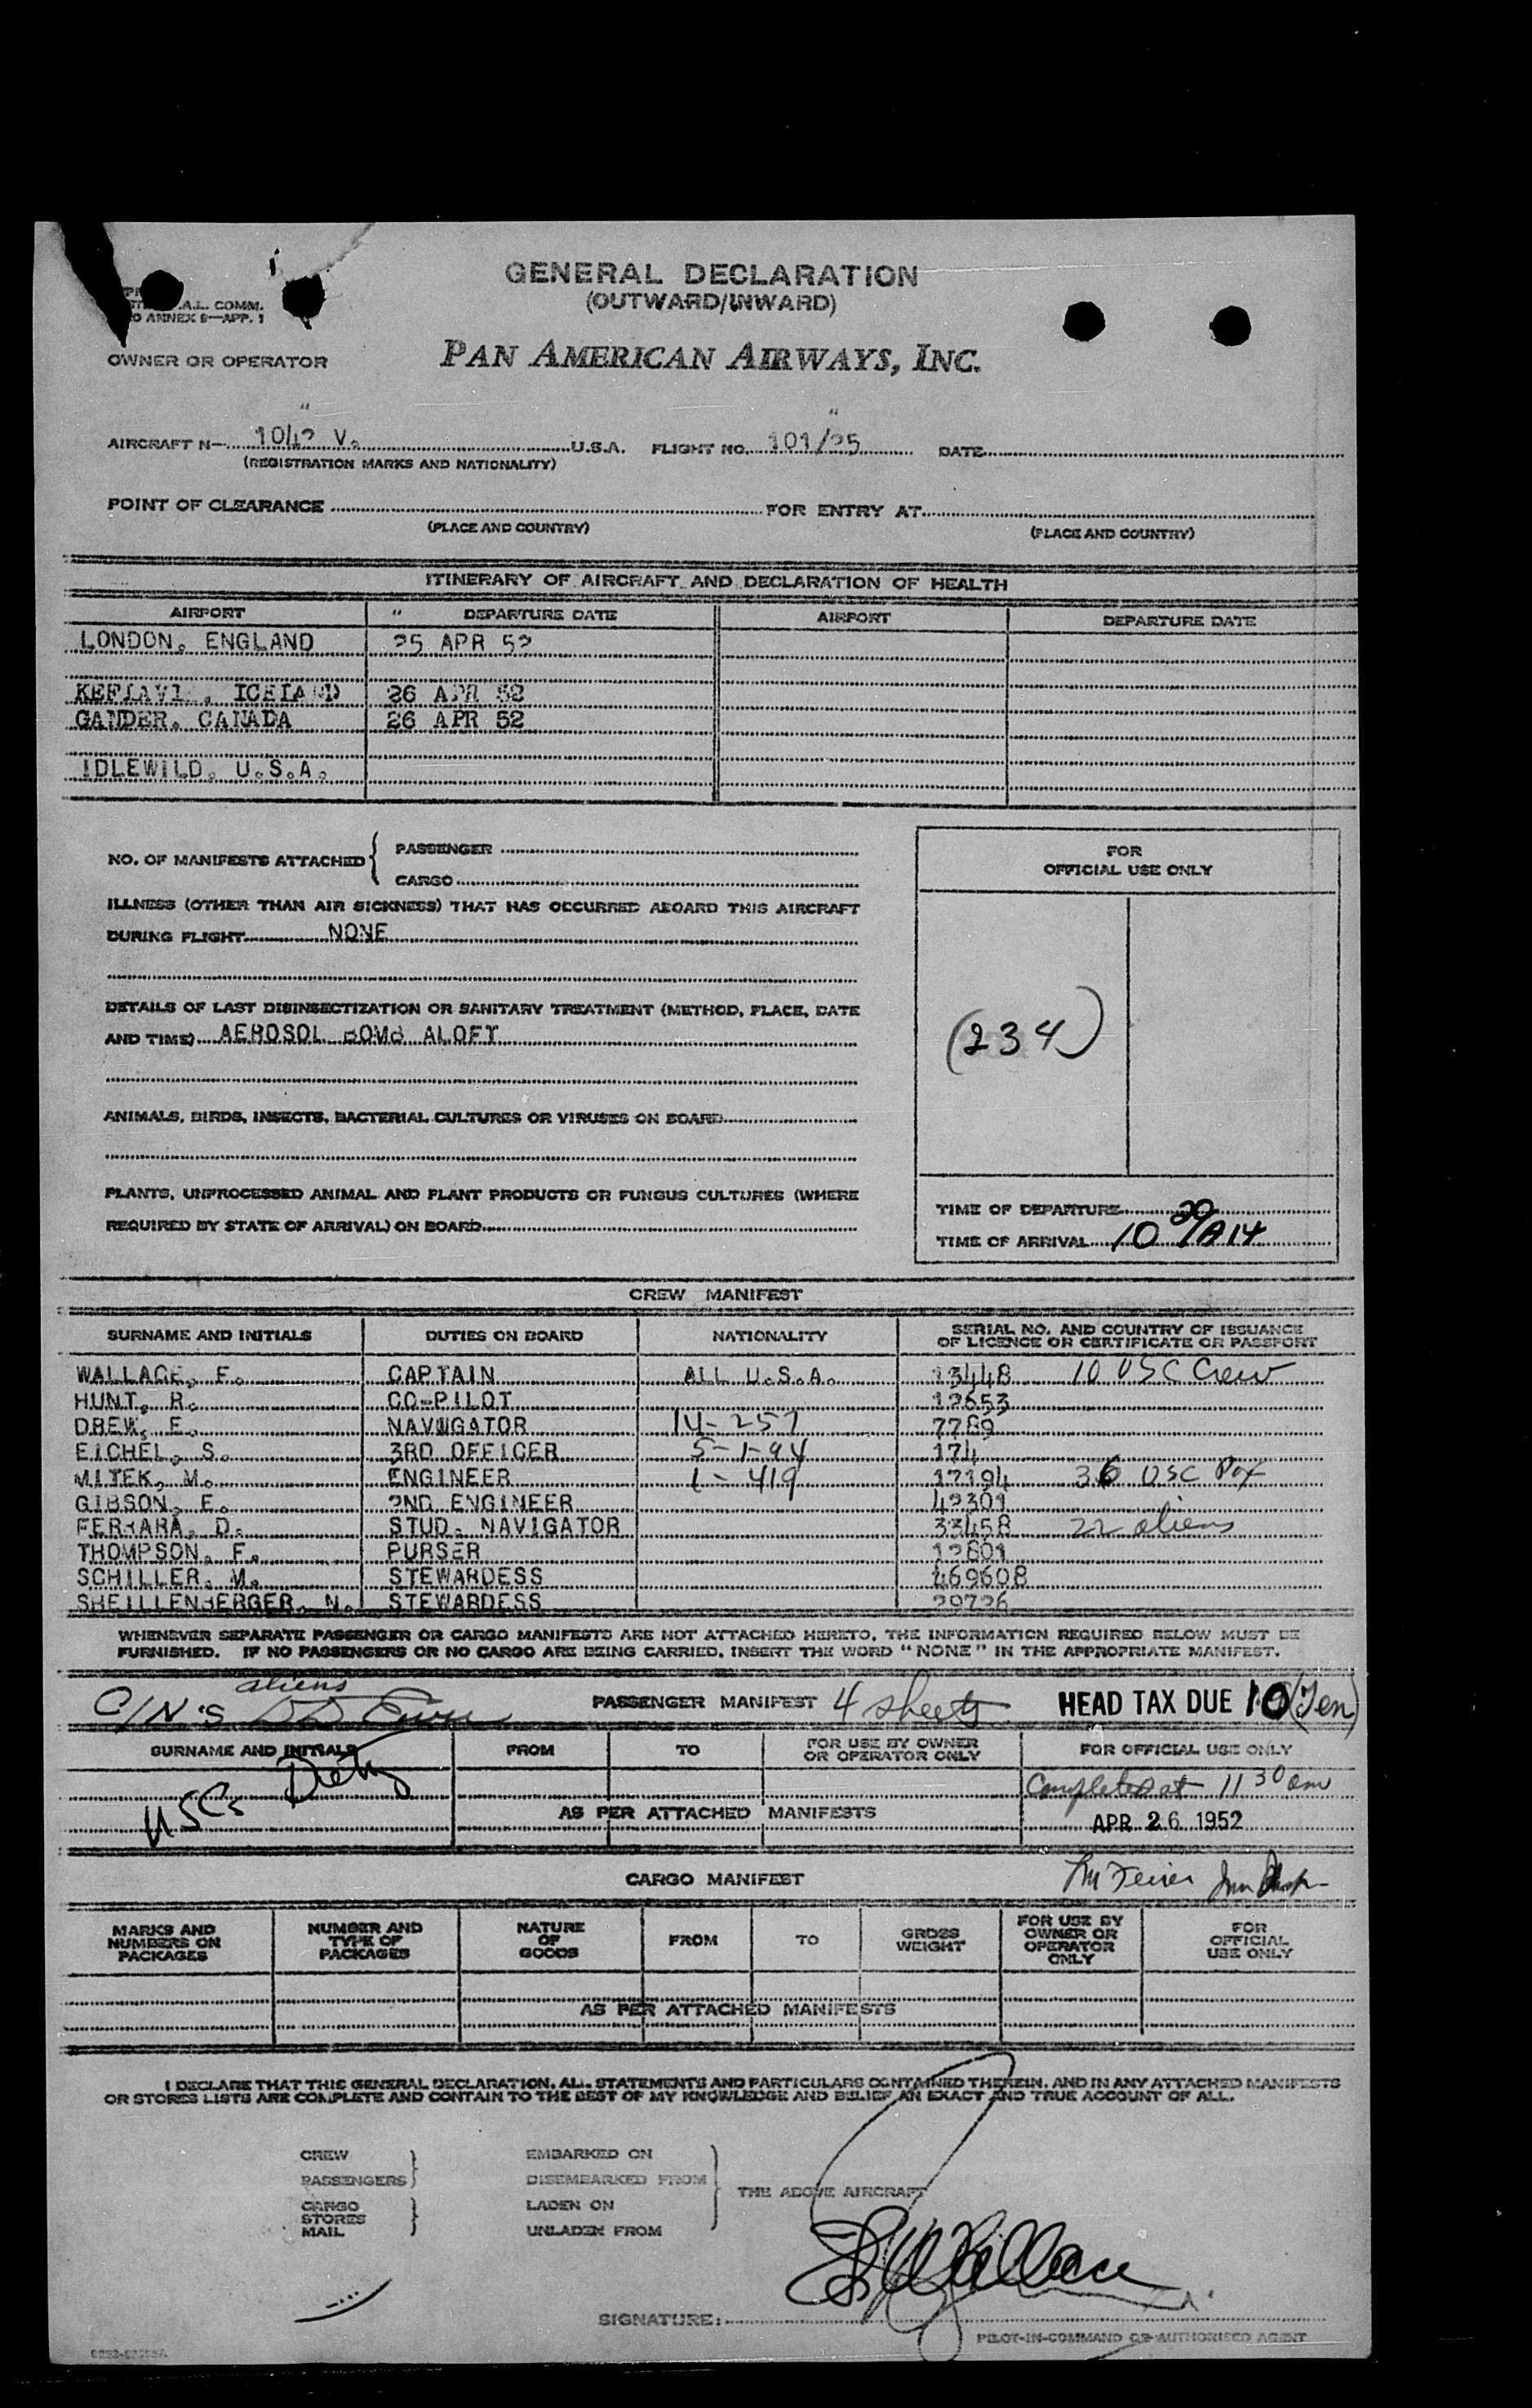 GENERAL DECLARATION
(OUTWARD/INWARD)
A.L. COMM.
ANNEX 9—APP. 1
OWNER OR OPERATOR PAN AMERICAN AIRWAYS, INC.
AIRCRAFT N— 1042 V. U.S.A. FLIGHT NO. 101/25 DATE
(REGISTRATION MARKS AND NATIONALITY)
POINT OF CLEARANCE FOR ENTRY AT
(PLACE AND COUNTRY) (PLACE AND COUNTRY)
ITINERARY OF AIRCRAFT AND DECLARATION OF HEALTH
AIRPORT DEPARTURE DATE AIRPORT DEPARTURE DATE
LONDON, ENGLAND 25 APR 52
KEFLAVI , ICELAND 26 APR 52
GANDER, CANADA 26 APR 52
IDLEWILD, U.S.A.
NO. OF MANIFESTS ATTACHED { PASSENGER
CARGO
FOR
OFFICIAL USE ONLY
ILLNESS (OTHER THAN AIR SICKNESS) THAT HAS OCCURRED ABOARD THIS AIRCRAFT
DURING FLIGHT NONE
DETAILS OF LAST DISINSECTIZATION OR SANITARY TREATMENT (METHOD, PLACE, DATE
AND TIME) AEROSOL BOMB ALOFT
(234)
ANIMALS, BIRDS, INSECTS, BACTERIAL CULTURES OR VIRUSES ON BOARD
PLANTS, UNPROCESSED ANIMAL AND PLANT PRODUCTS OR FUNGUS CULTURES (WHERE
REQUIRED BY STATE OF ARRIVAL) ON BOARD
TIME OF DEPARTURE
TIME OF ARRIVAL 10 20/A14
CREW MANIFEST
SURNAME AND INITIALS DUTIES ON BOARD NATIONALITY SERIAL NO. AND COUNTRY OF ISSUANCE
OF LICENCE OR CERTIFICATE OR PASSPORT
WALLACE, F. CAPTAIN ALL U.S.A. 13448 10 USC Crew
HUNT, R. CO-PILOT 12653
DREW, E. NAVIGATOR 14-257 7789
EICHEL, S. 3RD OFFICER 5-1-94 174
MITEK, M. ENGINEER 1-419 17194 36 USC Pax
GIBSON, F. 2ND ENGINEER 42301
FERRARA, D. STUD. NAVIGATOR 33458 22 aliens
THOMPSON, F. PURSER 12801
SCHILLER, M. STEWARDESS 469608
SHEILLENBERGER, N. STEWARDESS 29726
WHENEVER SEPARATE PASSENGER OR CARGO MANIFESTS ARE NOT ATTACHED HERETO, THE INFORMATION REQUIRED BELOW MUST BE
FURNISHED. IF NO PASSENGERS OR NO CARGO ARE BEING CARRIED, INSERT THE WORD "NONE" IN THE APPROPRIATE MANIFEST.
aliens
C/N's PASSENGER MANIFEST 4 sheets HEAD TAX DUE 10 (Ten)
SURNAME AND INITIALS FROM TO FOR USE BY OWNER
OR OPERATOR ONLY FOR OFFICIAL USE ONLY
USCs Completed at 11 30 am
AS PER ATTACHED MANIFESTS
APR 26 1952
CARGO MANIFEST
MARKS AND
NUMBERS ON
PACKAGES NUMBER AND
TYPE OF
PACKAGES NATURE
OF
GOODS FROM TO GROSS
WEIGHT FOR USE BY
OWNER OR
OPERATOR
ONLY FOR
OFFICIAL
USE ONLY
AS PER ATTACHED MANIFESTS
I DECLARE THAT THIS GENERAL DECLARATION, ALL STATEMENTS AND PARTICULARS CONTAINED THEREIN, AND IN ANY ATTACHED MANIFESTS
OR STORES LISTS ARE COMPLETE AND CONTAIN TO THE BEST OF MY KNOWLEDGE AND BELIEF AN EXACT AND TRUE ACCOUNT OF ALL.
CREW EMBARKED ON
PASSENGERS DISEMBARKED FROM
THE ABOVE AIRCRAFT
CARGO LADEN ON
STORES
MAIL UNLADEN FROM
SIGNATURE:
PILOT-IN-COMMAND OR AUTHORISED AGENT